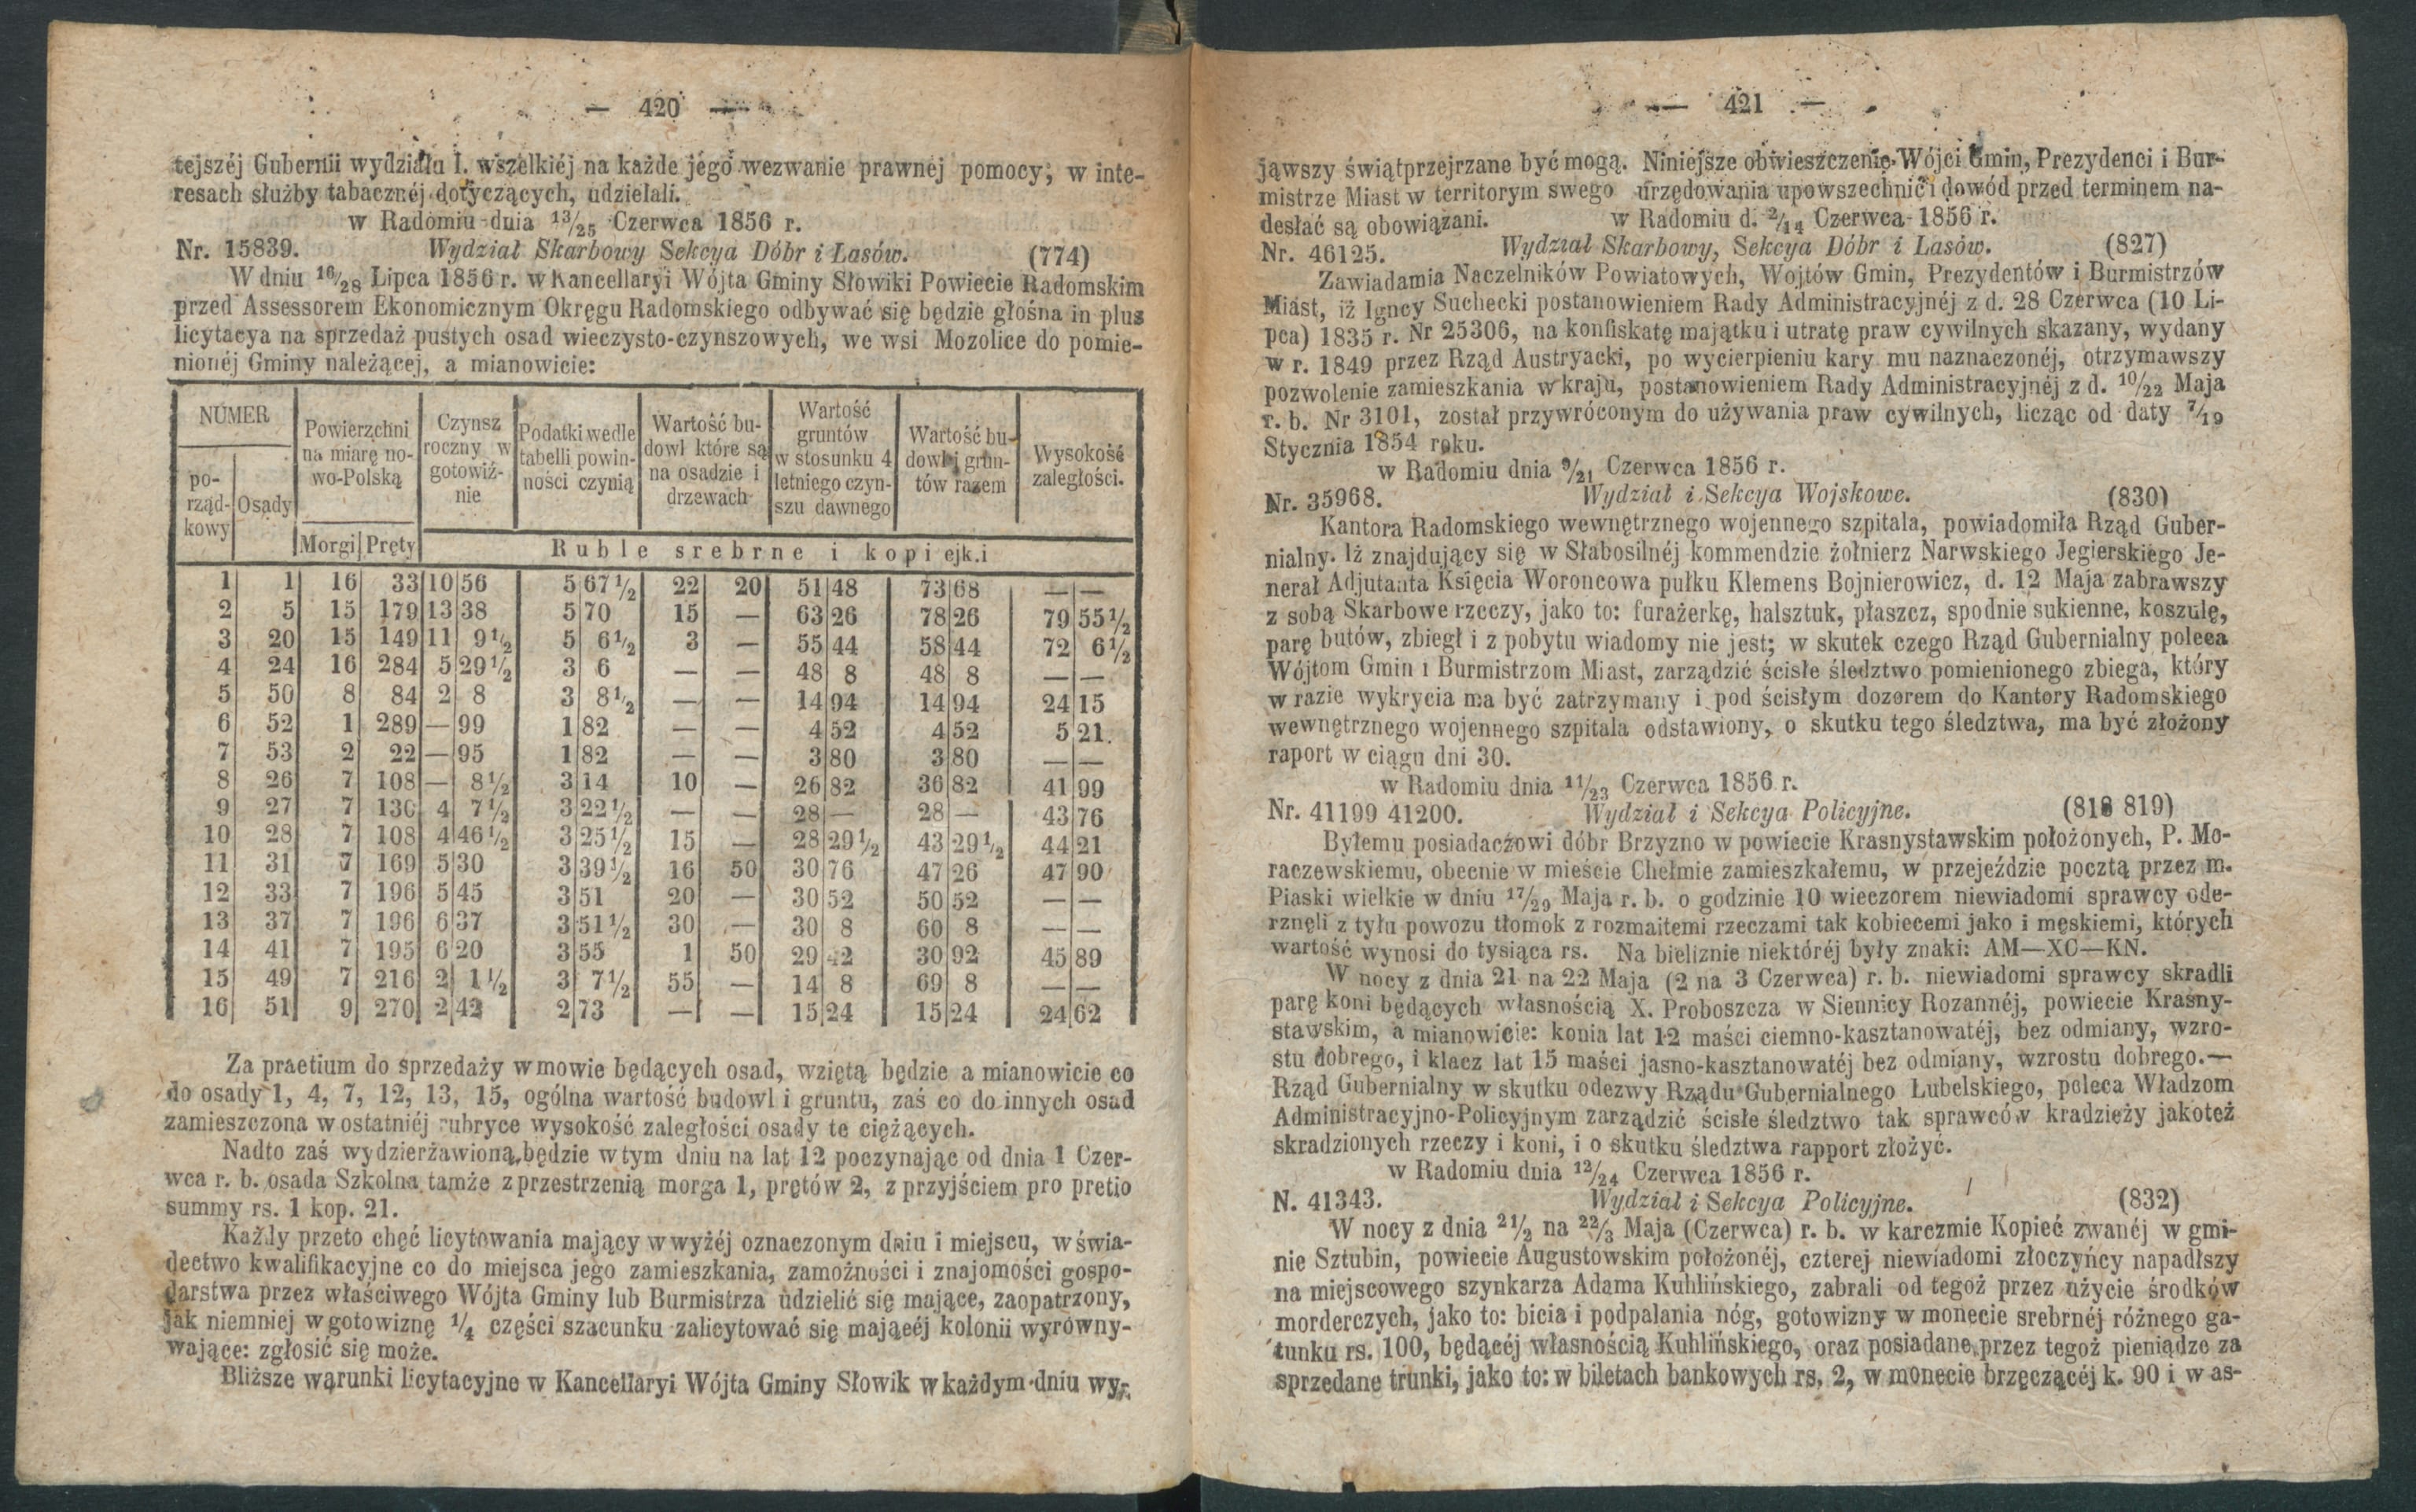 — 420 —
tejszéj Gubernii wydziału I. wszelkiéj na każde jégo wezwanie prawnej pomocy, w inte-
resach służby tabacznéj dotyczących, udzielali.
w Radomiu dnia 13/25 Czerwca 1856 r.
Nr. 15839. Wydział Skarbowy Sekcya Dóbr i Lasów. (774)
W dniu 16/28 Lipca 1856 r. w Kancellaryi Wójta Gminy Słowiki Powiecie Radomskim
przed Assessorem Ekonomicznym Okręgu Radomskiego odbywać się będzie głośna in plus
licytacya na sprzedaż pustych osad wieczysto-czynszowych, we wsi Mozolice do pomie-
nionéj Gminy należącej, a mianowicie:
NUMER | Powierzchni na miarę no-wo-Polską | Czynsz roczny w gotowiź-nie | Podatki wedle tabelli powin-ności czynią | Wartość bu-dowl które są na osadzie i drzewach | Wartość gruntów w stosunku 4 letniego czyn-szu dawnego | Wartość bu-dowl i grun-tów razem | Wysokość zaległości.
po-rząd-kowy | Osady | Morgi | Pręty | Ruble srebrne i kopiejk.i
1 | 1 | 16 | 33 | 10 56 | 5 67½ | 22 20 | 51 48 | 73 68 | — —
2 | 5 | 15 | 179 | 13 38 | 5 70 | 15 — | 63 26 | 78 26 | 79 55½
3 | 20 | 15 | 149 | 11 9½ | 5 6½ | 3 — | 55 44 | 58 44 | 72 6½
4 | 24 | 16 | 284 | 5 29½ | 3 6 | — — | 48 8 | 48 8 | — —
5 | 50 | 8 | 84 | 2 8 | 3 8½ | — — | 14 94 | 14 94 | 24 15
6 | 52 | 1 | 289 | — 99 | 1 82 | — — | 4 52 | 4 52 | 5 21.
7 | 53 | 2 | 22 | — 95 | 1 82 | — — | 3 80 | 3 80 | — —
8 | 26 | 7 | 108 | — 8½ | 3 14 | 10 — | 26 82 | 36 82 | 41 99
9 | 27 | 7 | 130 | 4 7½ | 3 22½ | — — | 28 — | 28 — | 43 76
10 | 28 | 7 | 108 | 4 46½ | 3 25½ | 15 — | 28 29½ | 43 29½ | 44 21
11 | 31 | 7 | 169 | 5 30 | 3 39½ | 16 50 | 30 76 | 47 26 | 47 90
12 | 33 | 7 | 196 | 5 45 | 3 51 | 20 — | 30 52 | 50 52 | — —
13 | 37 | 7 | 196 | 6 37 | 3 51½ | 30 — | 30 8 | 60 8 | — —
14 | 41 | 7 | 195 | 6 20 | 3 55 | 1 50 | 29 42 | 30 92 | 45 89
15 | 49 | 7 | 216 | 2 1½ | 3 7½ | 55 — | 14 8 | 69 8 | — —
16 | 51 | 9 | 270 | 2 42 | 2 73 | — — | 15 24 | 15 24 | 24 62
Za praetium do sprzedaży w mowie będących osad, wziętą będzie a mianowicie co
do osady 1, 4, 7, 12, 13, 15, ogólna wartość budowl i gruntu, zaś co do innych osad
zamieszczona w ostatniéj rubryce wysokość zaległości osady te ciężących.
Nadto zaś wydzierżawioną będzie w tym dniu na lat 12 poczynając od dnia 1 Czer-
wca r. b. osada Szkolna tamże z przestrzenią morga 1, prętów 2, z przyjściem pro pretio
summy rs. 1 kop. 21.
Każdy przeto chęć licytowania mający w wyżéj oznaczonym dniu i miejscu, w świa-
dectwo kwalifikacyjne co do miejsca jego zamieszkania, zamożności i znajomości gospo-
darstwa przez właściwego Wójta Gminy lub Burmistrza udzielić się mające, zaopatrzony,
jak niemniej w gotowiznę 1/4 części szacunku zalicytować się mającéj kolonii wyrówny-
wające: zgłosić się może.
Bliższe warunki licytacyjne w Kancellaryi Wójta Gminy Słowik w każdym dniu wy-
— 421 —
jąwszy świąt przejrzane być mogą. Niniejsze obwieszczenie Wójci Gmin, Prezydenci i Bur-
mistrze Miast w territorym swego urzędowania upowszechnić i dowód przed terminem na-
desłać są obowiązani. w Radomiu d. 2/14 Czerwca 1856 r.
Nr. 46125. Wydział Skarbowy, Sekcya Dóbr i Lasów. (827)
Zawiadamia Naczelników Powiatowych, Wojtów Gmin, Prezydentów i Burmistrzów
Miast, iż Igncy Suchecki postanowieniem Rady Administracyjnéj z d. 28 Czerwca (10 Li-
pca) 1835 r. Nr 25306, na konfiskatę majątku i utratę praw cywilnych skazany, wydany
w r. 1849 przez Rząd Austryacki, po wycierpieniu kary mu naznaczonéj, otrzymawszy
pozwolenie zamieszkania w kraju, postanowieniem Rady Administracyjnéj z d. 10/22 Maja
r. b. Nr 3101, został przywróconym do używania praw cywilnych, licząc od daty 7/19
Stycznia 1854 roku.
w Radomiu dnia 9/21 Czerwca 1856 r.
Nr. 35968. Wydział i Sekcya Wojskowe. (830)
Kantora Radomskiego wewnętrznego wojennego szpitala, powiadomiła Rząd Guber-
nialny. Iż znajdujący się w Słabosilnéj kommendzie żołnierz Narwskiego Jegierskiego Je-
nerał Adjutanta Księcia Woroncowa pułku Klemens Bojnierowicz, d. 12 Maja zabrawszy
z sobą Skarbowe rzeczy, jako to: furażerkę, halsztuk, płaszcz, spodnie sukienne, koszulę,
parę butów, zbiegł i z pobytu wiadomy nie jest; w skutek czego Rząd Gubernialny poleca
Wójtom Gmin i Burmistrzom Miast, zarządzić ścisłe śledztwo pomienionego zbiega, który
w razie wykrycia ma być zatrzymany i pod ścisłym dozorem do Kantory Radomskiego
wewnętrznego wojennego szpitala odstawiony, o skutku tego śledztwa, ma być złożony
raport w ciągu dni 30.
w Radomiu dnia 11/23 Czerwca 1856 r.
Nr. 41199 41200. Wydział i Sekcya Policyjne. (818 819)
Byłemu posiadaczowi dóbr Brzyzno w powiecie Krasnystawskim położonych, P. Mo-
raczewskiemu, obecnie w mieście Chełmie zamieszkałemu, w przejeździe pocztą przez m.
Piaski wielkie w dniu 17/29 Maja r. b. o godzinie 10 wieczorem niewiadomi sprawcy ode-
rznęli z tyłu powozu tłomok z rozmaitemi rzeczami tak kobiecemi jako i męskiemi, których
wartość wynosi do tysiąca rs. Na bieliznie niektóréj były znaki: AM—XC—KN.
W nocy z dnia 21 na 22 Maja (2 na 3 Czerwca) r. b. niewiadomi sprawcy skradli
parę koni będących własnością X. Proboszcza w Siennicy Rozannéj, powiecie Krasny-
stawskim, a mianowicie: konia lat 12 maści ciemno-kasztanowatéj, bez odmiany, wzro-
stu dobrego, i klacz lat 15 maści jasno-kasztanowatéj bez odmiany, wzrostu dobrego.—
Rząd Gubernialny w skutku odezwy Rządu Gubernialnego Lubelskiego, poleca Władzom
Administracyjno-Policyjnym zarządzić ścisłe śledztwo tak sprawców kradzieży jakoteż
skradzionych rzeczy i koni, i o skutku śledztwa rapport złożyć.
w Radomiu dnia 12/24 Czerwca 1856 r.
N. 41343. Wydział i Sekcya Policyjne. (832)
W nocy z dnia 21/2 na 22/3 Maja (Czerwca) r. b. w karczmie Kopieć zwanéj w gmi-
nie Sztubin, powiecie Augustowskim położonéj, czterej niewiadomi złoczyńcy napadłszy
na miejscowego szynkarza Adama Kuhlińskiego, zabrali od tegoż przez użycie środków
morderczych, jako to: bicia i podpalania nóg, gotowizny w monecie srebrnéj różnego ga-
tunku rs. 100, będącéj własnością Kuhlińskiego, oraz posiadane przez tegoż pieniądze za
sprzedane trunki, jako to: w biletach bankowych rs. 2, w monecie brzęczącéj k. 90 i w as-